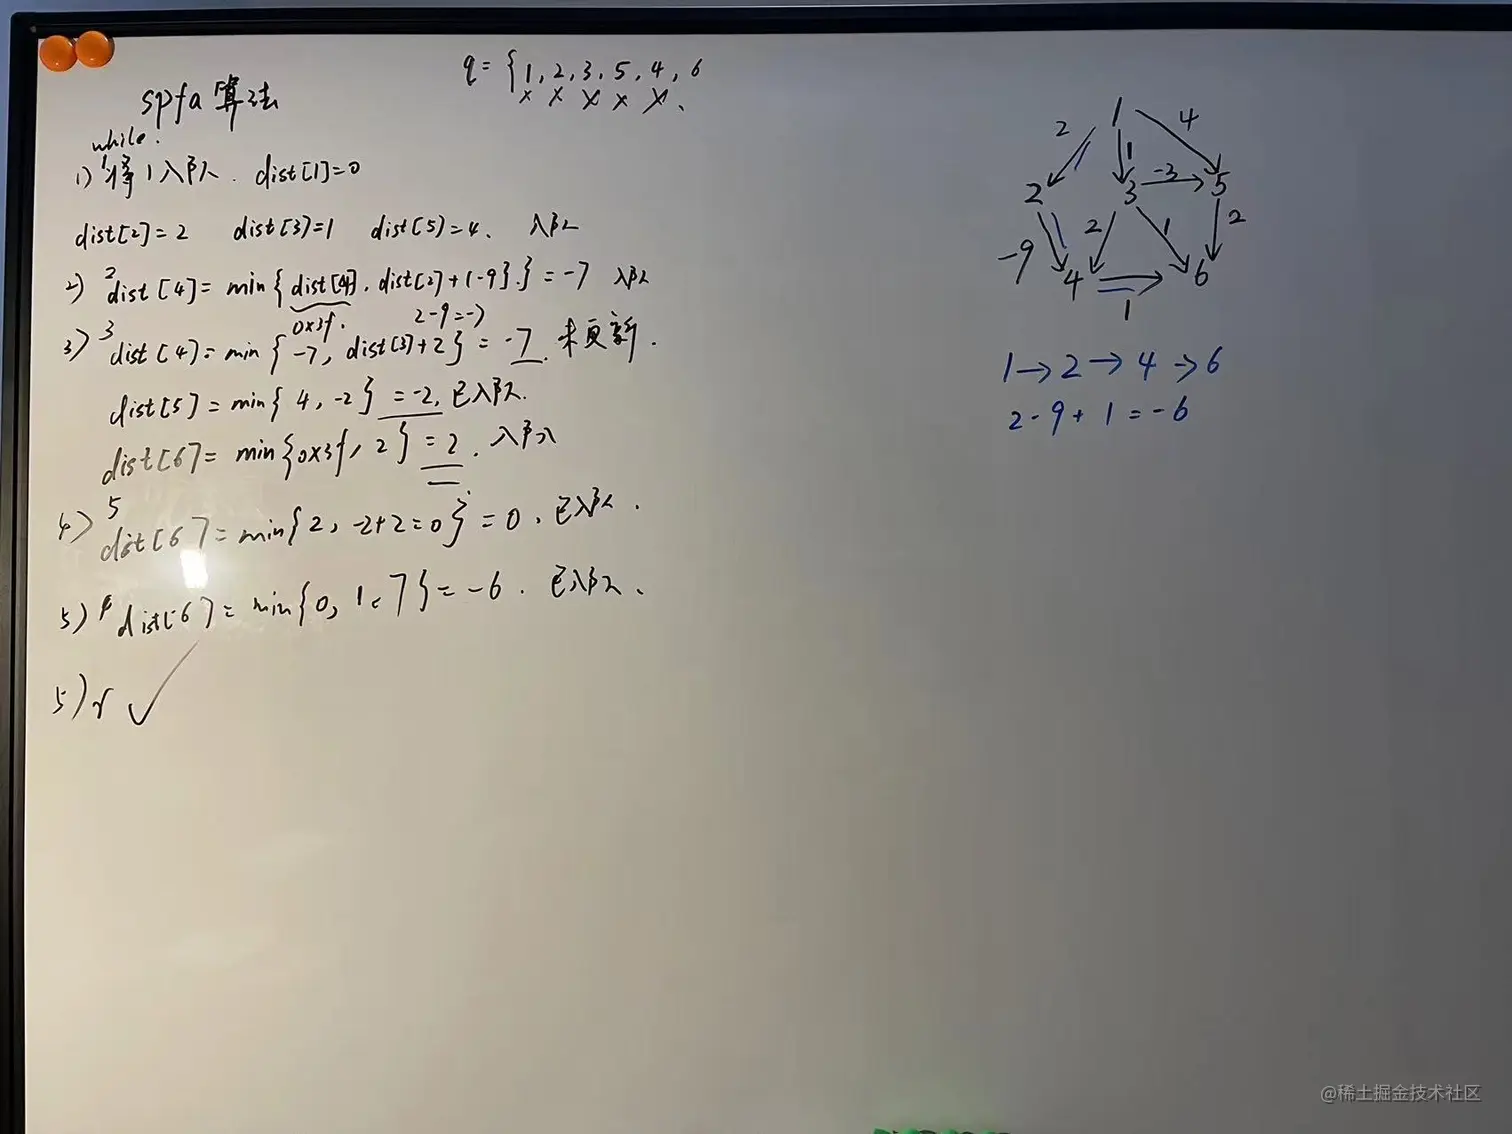 spfa 算法
q = { 1, 2, 3, 5, 4, 6
x x x x x
while:
1) 1 将 1 入队. dist[1]=0
dist[2]=2 dist[3]=1 dist[5]=4. 入队
2) 2 dist[4]= min{dist[4], dist[2]+(-9)} = -7 入队
0x3f. 2-9=-7
3) 3 dist[4]= min{ -7, dist[3]+2} = -7. 未更新.
dist[5]= min{ 4, -2} = -2, 已入队.
dist[6]= min{0x3f, 2} = 2. 入队
4) 5 dist[6]= min{2, -2+2=0} = 0, 已入队.
5) dist[6]= min{0, 1-7}= -6. 已入队.
5) ✓
1
2 1 4
2 3 -3 5
-9 2 1 2
4 6
1
1→2→4→6
2-9+1=-6
@稀土掘金技术社区